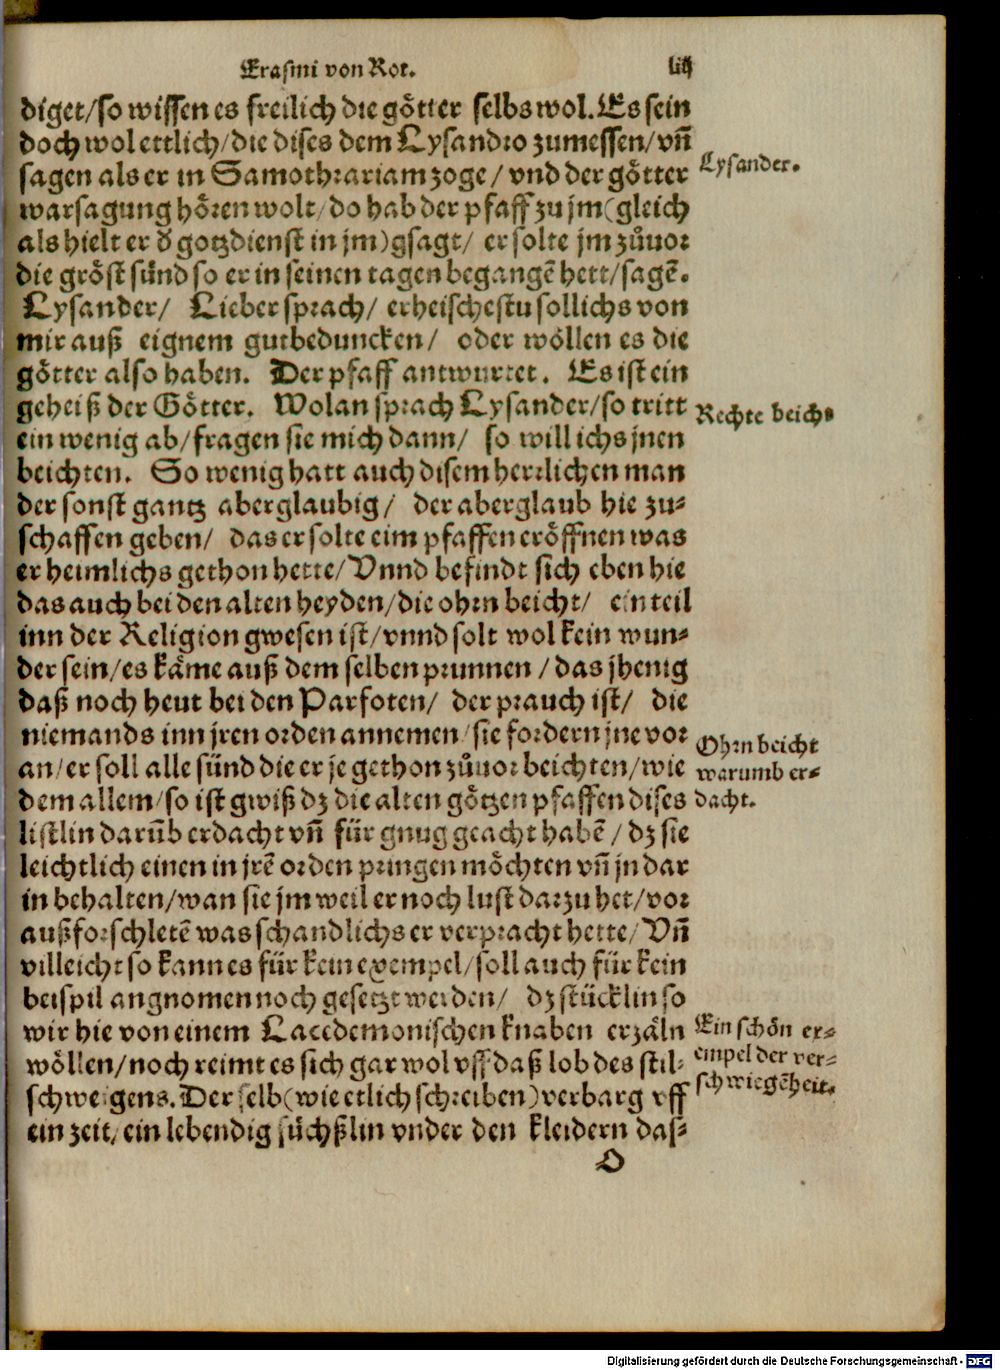 Erasmi von Rot. liij
diget/so wissen es freilich die götter selbs wol. Es sein
doch wol ettlich/die dises dem Lysandro zumessen/vñ
sagen als er in Samothrariam zoge/ vnd der götter
warsagung hören wolt/do hab der pfaff zu jm(gleich
als hielt er đ gotzdienst in jm)gsagt/ er solte jm zůuor
die gröst sünd so er in seinen tagen begangẽ hett/sagẽ.
Lysander/ Lieber sprach/ erheischestu sollichs von
mir auß eignem gutbeduncken/ oder wöllen es die
götter also haben. Der pfaff antwurtet. Es ist ein
geheiß der Götter. Wolan sprach Lysander/so tritt
ein wenig ab/fragen sie mich dann/ so will ichs jnen
beichten. So wenig hatt auch disem herrlichen man
der sonst gantz aberglaubig/ der aberglaub hie zu-
schaffen geben/ das er solte eim pfaffen eröffnen was
er heimlichs gethon hette/Vnnd befindt sich eben hie
das auch bei den alten heyden/die ohrn beicht/ ein teil
inn der Religion gwesen ist/vnnd solt wol kein wun-
der sein/es käme auß dem selben prunnen/das jhenig
daß noch heut bei den Parfoten/ der prauch ist/ die
niemands inn jren orden annemen/sie fordern jne vor
an/er soll alle sünd die er je gethon zůuor beichten/wie
dem allem/so ist gwiß dz die alten götzen pfaffen dises
listlin darũb erdacht vñ für gnug geacht habẽ/dz sie
leichtlich einen in jrẽ orden pringen möchten vñ jn dar
in behalten/wan sie jm weil er noch lust darzu het/vor
außforschletẽ was schandlichs er verpracht hette/Vñ
villeicht so kann es für kein exempel/soll auch für kein
beispil angnomen noch gesetzt werden/ dz stücklin so
wir hie von einem Lacedemonischen knaben erzäln
wöllen/noch reimt es sich gar wol vff daß lob des stil-
schweigens. Der selb(wie etlich schreiben)verbarg vff
ein zeit/ein lebendig füchßlin vnder den kleidern das-
O
Lysander.
Rechte beicht
Ohrn beicht
warumb er-
dacht.
Ein schön ex-
empel der ver-
schwiegẽheit.
Digitalisierung gefördert durch die Deutsche Forschungsgemeinschaft - DFG